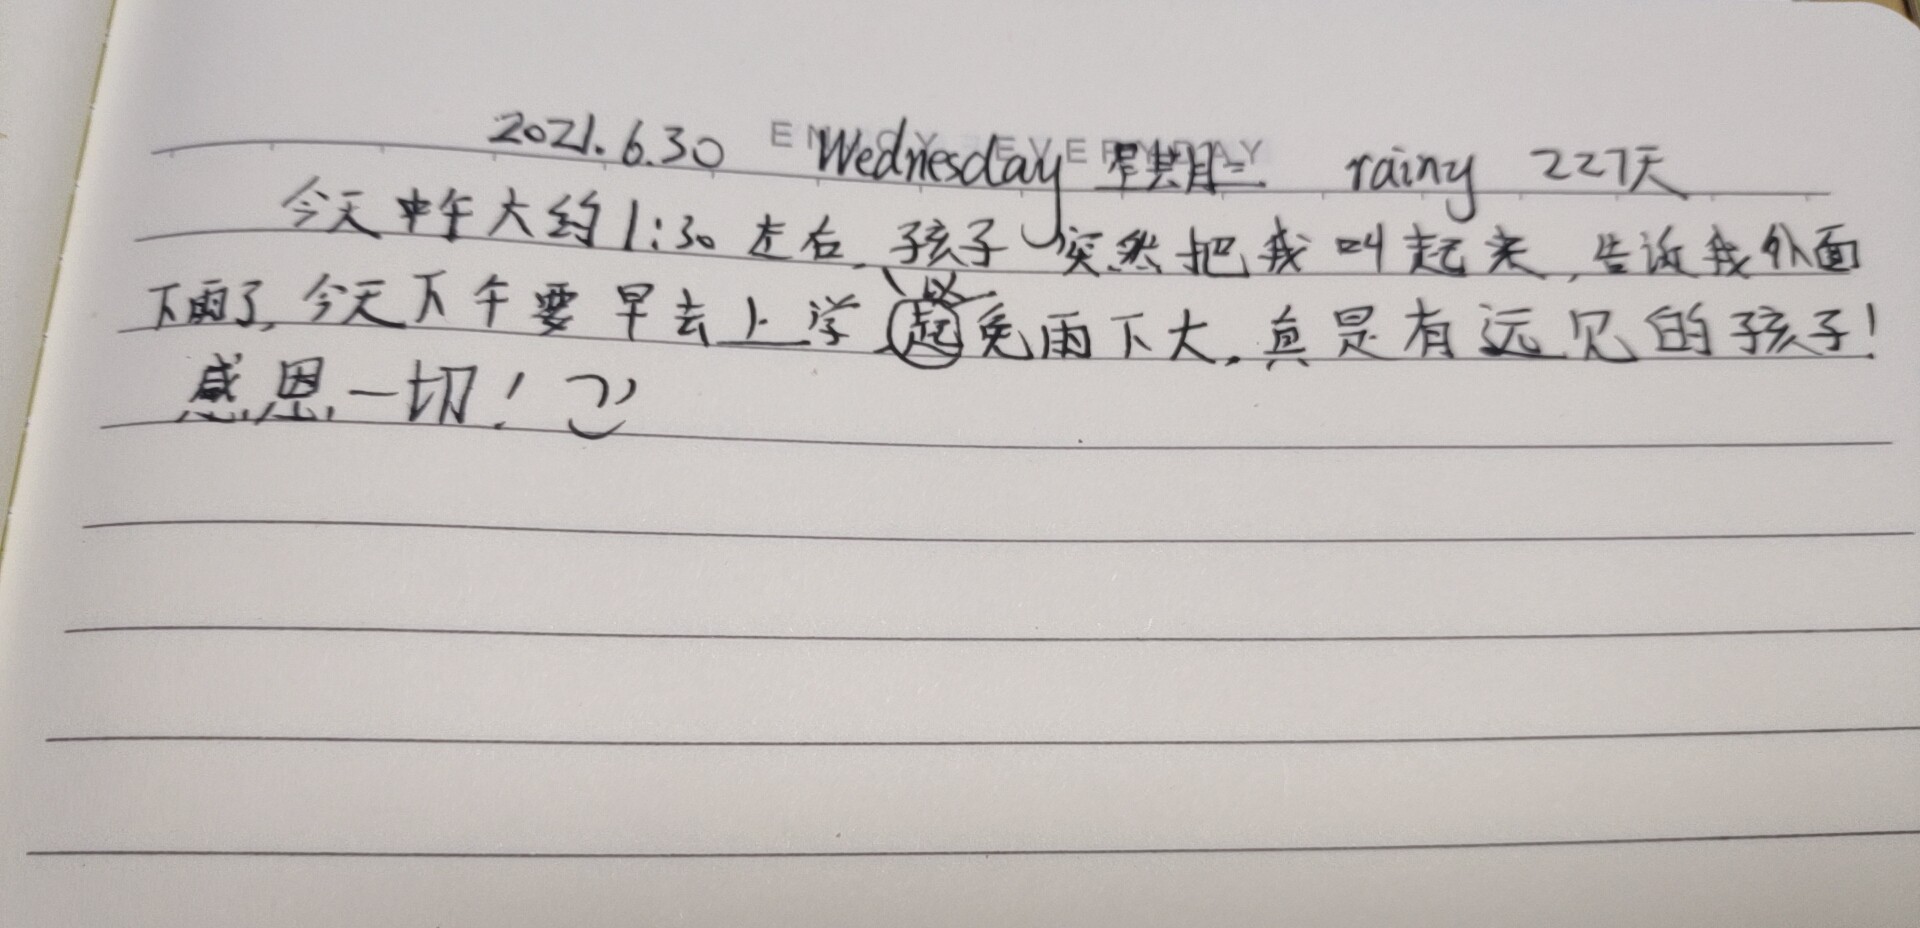 2021.6.30 Wednesday 星期三 rainy 227天
今天中午大约1:30左右,孩子突然把我叫起来,告诉我外面
下雨了,今天下午要早去上学,以免雨下大,真是有远见的孩子!
感恩一切!